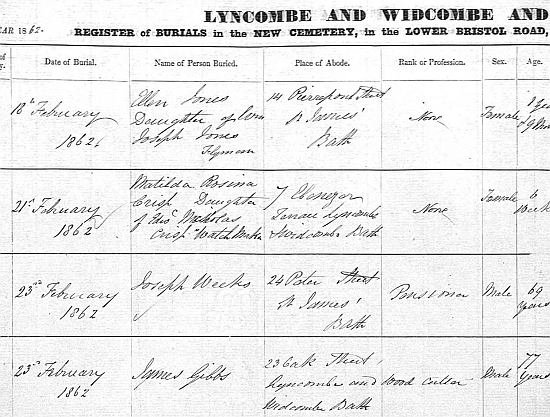 LYNCOMBE AND WIDCOMBE AND
EAR 1862.
REGISTER of BURIALS in the NEW CEMETERY, in the LOWER BRISTOL ROAD,
of
y. Date of Burial. Name of Person Buried. Place of Abode. Rank or Profession. Sex. Age.
18th February
1862
Ellen Jones
Daughter of
Joseph Jones
14 Pierrepond Street
St James'
Bath
None
Female
21st February
1862
Matilda Rosina
Crisp Daughter
of Nicholas
Crisp Watch Maker
7 Ebenezer
Terrace Lyncombe
& Widcombe Bath
None
Female
6
Weeks
23rd February
1862
Joseph Weeks
24 Peter Street
St James'
Bath
Pensioner
Male
69
Years
23rd February
1862
James Gibbs
23 Oak Street,
Lyncombe and
Widcombe Bath
Wood Cutter
Male
77
Years